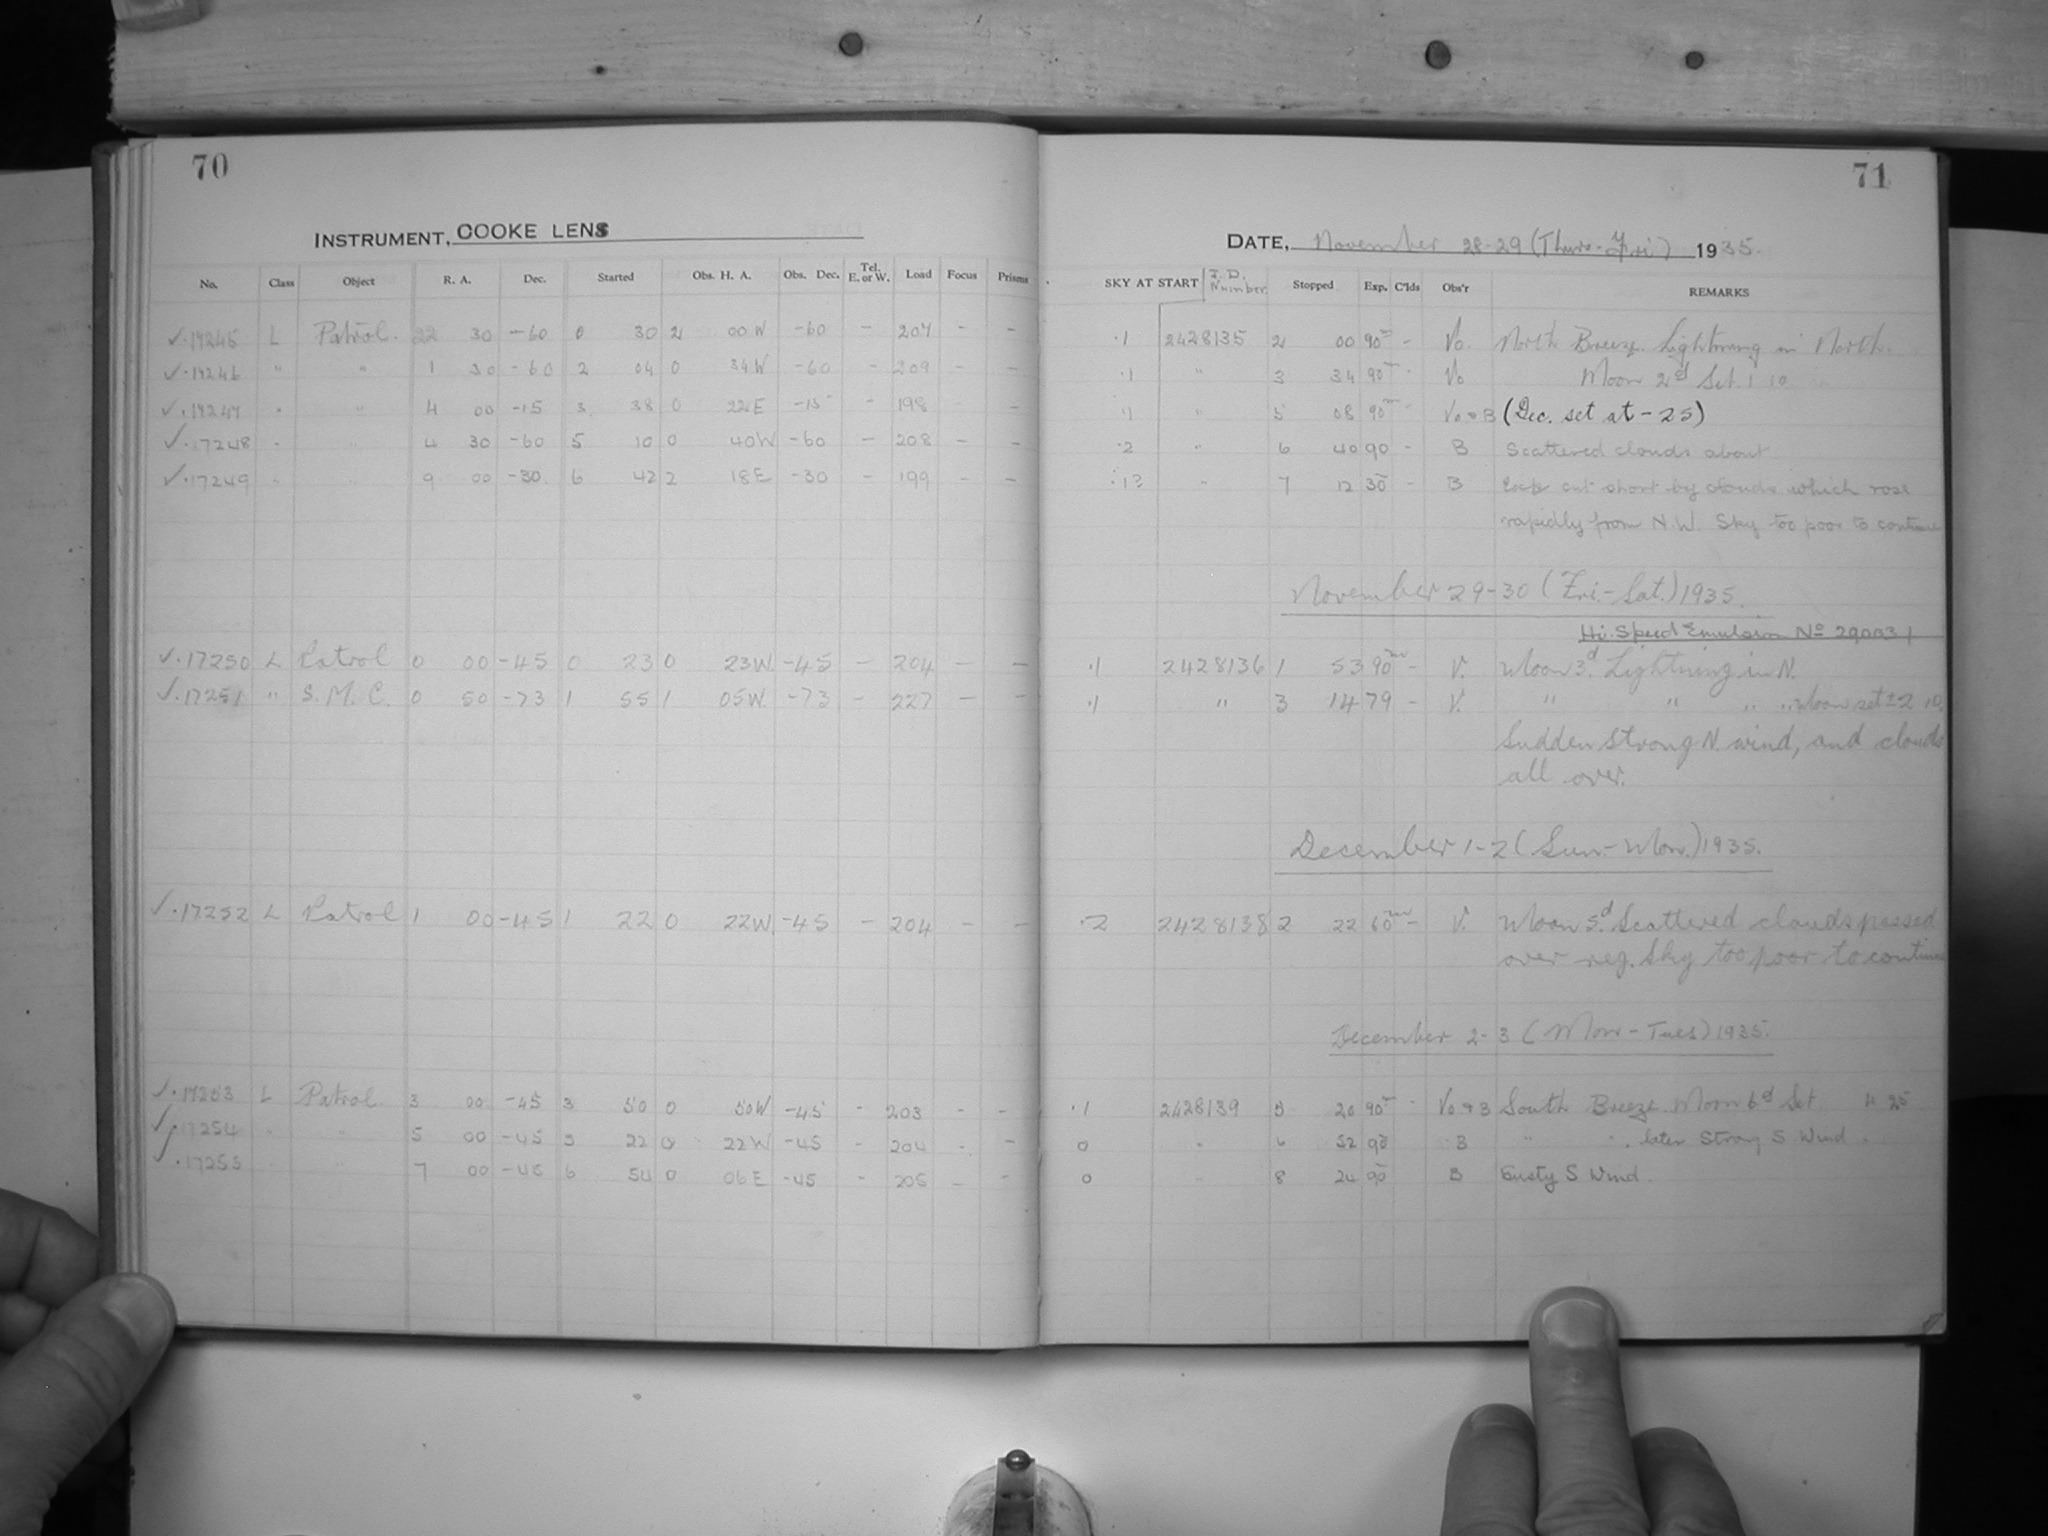 70
INSTRUMENT, COOKE LENS
No. Class Object R. A. Dec. Started Obs. H. A. Obs. Dec. Tel. E. or W. Load Focus Prisms
✓.17245 L Patrol. 22 30 -60 0 30 2 00 W -60 - 207 - -
✓.17246 " " 1 30 -60 2 04 0 34 W -60 - 209 - -
✓.17247 " " 4 00 -15 3 38 0 22 E -15 - 198 - -
✓.17248 " " 4 30 -60 5 10 0 40W -60 - 208 - -
✓.17249 " " 9 00 -30. 6 42 2 18 E -30 - 199 - -
✓.17250 L Patrol 0 00 -45 0 23 0 23W. -45 - 204 - -
✓.17251 " S.M.C. 0 50 -73 1 55 1 05W. -73 - 227 - -
✓.17252 L Patrol 1 00 -45 1 22 0 22W. -45 - 204 - -
✓.17253 L Patrol 3 00 -45 3 50 0 50W -45 - 203 - -
✓.17254 " " 5 00 -45 5 22 0 22W -45 - 204 - -
✓.17255 " " 7 00 -45 6 54 0 06 E -45 - 205 - -
71
DATE, November 28-29 (Thurs-Fri) 1935.
SKY AT START J.D. Number Stopped Exp. C'lds Obs'r REMARKS
.1 2428135 2 00 90m - Vo. North Breeze. Lightning in North.
.1 " 3 34 90m - Vo Moon 2d Set. 1 10
.1 " 5 08 90m - Vo & B (Dec. set at -25)
.2 " 6 40 90 - B Scattered clouds about
.1? " 7 12 30 - B cut short by clouds which rose
rapidly from N.W. Sky too poor to continue
November 29-30 (Fri.-Sat.) 1935.
Hi-Speed Emulsion No 290031
.1 2428136 1 53 90m - V. Moon 3d. Lightning in N.
.1 " 3 14 79 - V. " " " " Moon set ± 2 10.
Sudden strong N. wind, and clouds
all over.
December 1-2 (Sun.-Mon.) 1935.
.2 2428138 2 22 60m - V. Moon 5d. Scattered clouds passed
over reg. Sky too poor to continue
December 2-3 (Mon-Tues) 1935.
.1 2428139 5 20 90m - Vo & B South Breeze. Moon 6d Set 11 25
0 " 6 52 90 B " " , later Strong S Wind.
0 " 8 24 90 B Gusty S Wind.